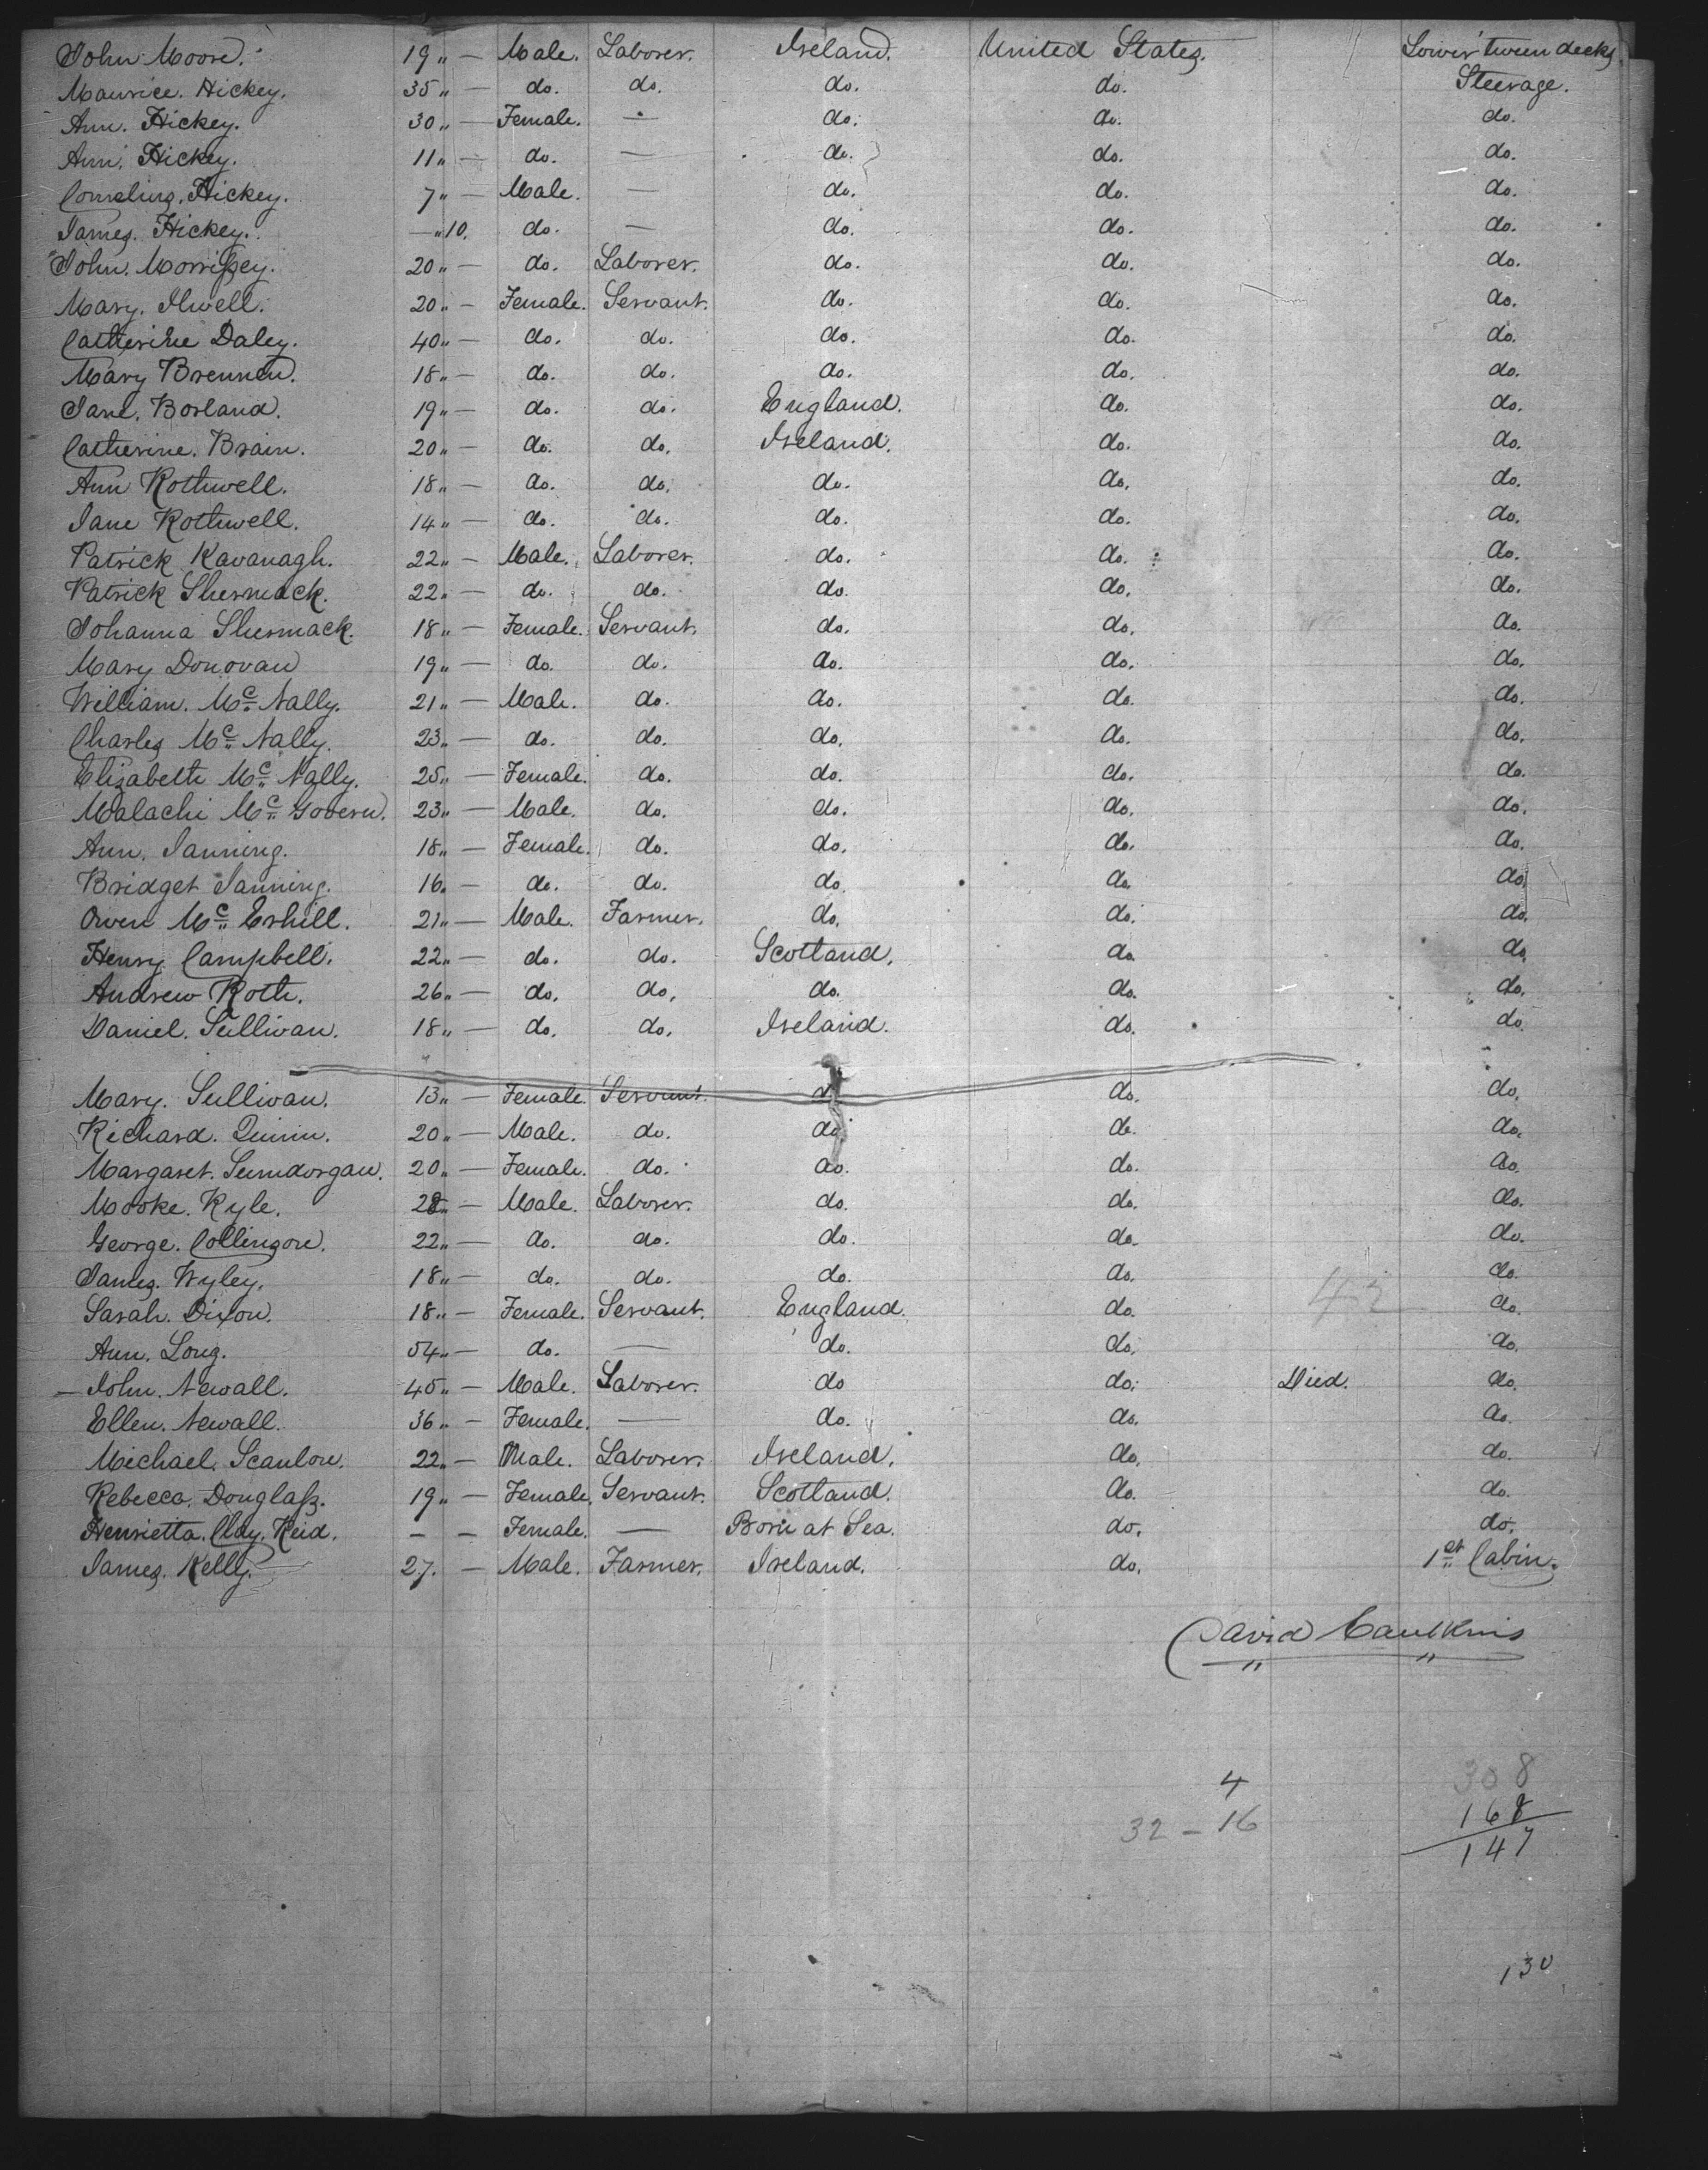 John Moore. 19 „ — Male. Laborer. Ireland. United States. Lower 'tween decks
Maurice. Hickey. 35 „ — do. do. do. do. Steerage.
Ann. Hickey. 30 „ — Female. — do. do. do.
Ann. Hickey. 11 „ — do. — do. do. do.
Cornelius. Hickey. 7 „ — Male. — do. do. do.
James. Hickey. — „ 10. do. — do. do. do.
John. Morrissey. 20 „ — do. Laborer. do. do. do.
Mary. Ilwell. 20 „ — Female. Servant. do. do. do.
Catherine Daley. 40 „ — do. do. do. do. do.
Mary Brennen. 18 „ — do. do. do. do. do.
Jane. Borland. 19 „ — do. do. England. do. do.
Catherine. Brain. 20 „ — do. do. Ireland. do. do.
Ann Rothwell. 18 „ — do. do. do. do. do.
Jane Rothwell. 14 „ — do. do. do. do. do.
Patrick Kavanagh. 22 „ — Male. Laborer. do. do. do.
Patrick Shermack. 22 „ — do. do. do. do. do.
Johanna Shermack. 18 „ — Female. Servant. do. do. do.
Mary Donovan 19 „ — do. do. do. do. do.
William. Mc Nally. 21 „ — Male. do. do. do. do.
Charles Mc Nally. 23 „ — do. do. do. do. do.
Elizabeth Mc Nally. 25 „ — Female. do. do. do. do.
Malachi Mc Govern. 23 „ — Male. do. do. do. do.
Ann. Janning. 18 „ — Female. do. do. do. do.
Bridget Janning. 16 „ — do. do. do. do. do.
Owen Mc Erhill. 21 „ — Male. Farmer. do. do. do.
Henry Campbell. 22 „ — do. do. Scotland. do. do.
Andrew Roth. 26 „ — do. do. do. do. do.
Daniel. Sullivan. 18 „ — do. do. Ireland. do. do.
Mary. Sullivan. 13 „ — Female. Servant. do. do. do.
Richard. Quinn. 20 „ — Male. do. do. do. do.
Margaret. 20 „ — Female. do. do. do. do.
Mooke. Kyle. 28 „ — Male. Laborer. do. do. do.
George. Collingore. 22 „ — do. do. do. do. do.
James. Wyley. 18 „ — do. do. do. do. do.
Sarah. Dixon. 18 „ — Female. Servant. England. do. do.
Ann. Long. 54 „ — do. — do. do. do.
— John. Newall. 45 „ — Male. Laborer. do do. Died. do.
Ellen. Newall. 36 „ — Female. — do. do. do.
Michael. Scanlon. 22 „ — Male. Laborer. Ireland. do. do.
Rebecca. Douglass. 19 „ — Female. Servant. Scotland. do. do.
Henrietta. Clay. Reid. — — Female. — Born at Sea. do. do.
James. Kelly. 27. — Male. Farmer. Ireland. do. 1st Cabin.
David Caulkins
4 308
32 - 16 168
147
130